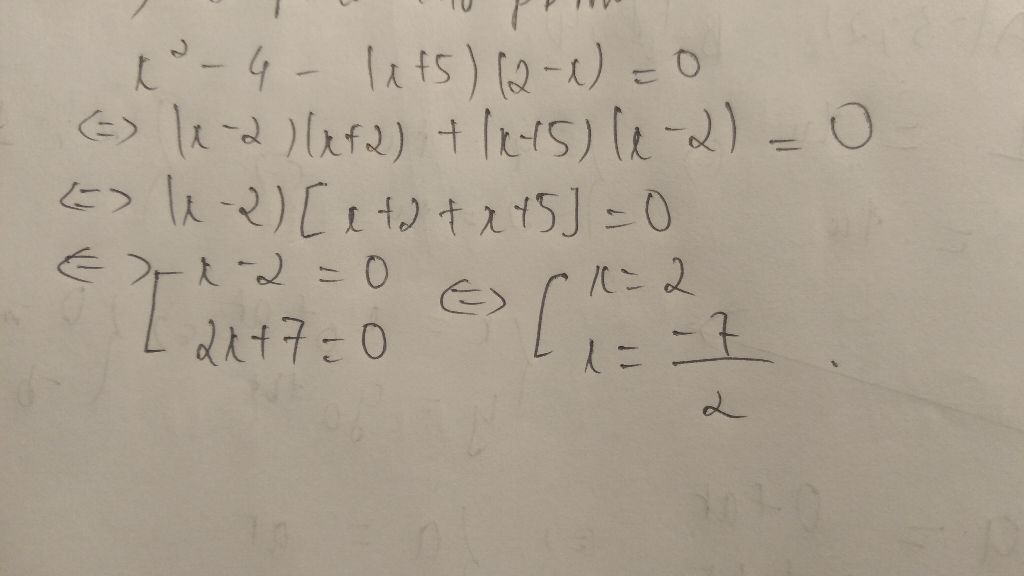 x² - 4 - (x+5)(2-x) = 0
<=> (x-2)(x+2) + (x+5)(x-2) = 0
<=> (x-2)[x+2+x+5] = 0
<=> [ x-2 = 0 <=> [ x = 2
2x+7 = 0 x = -7/2 .